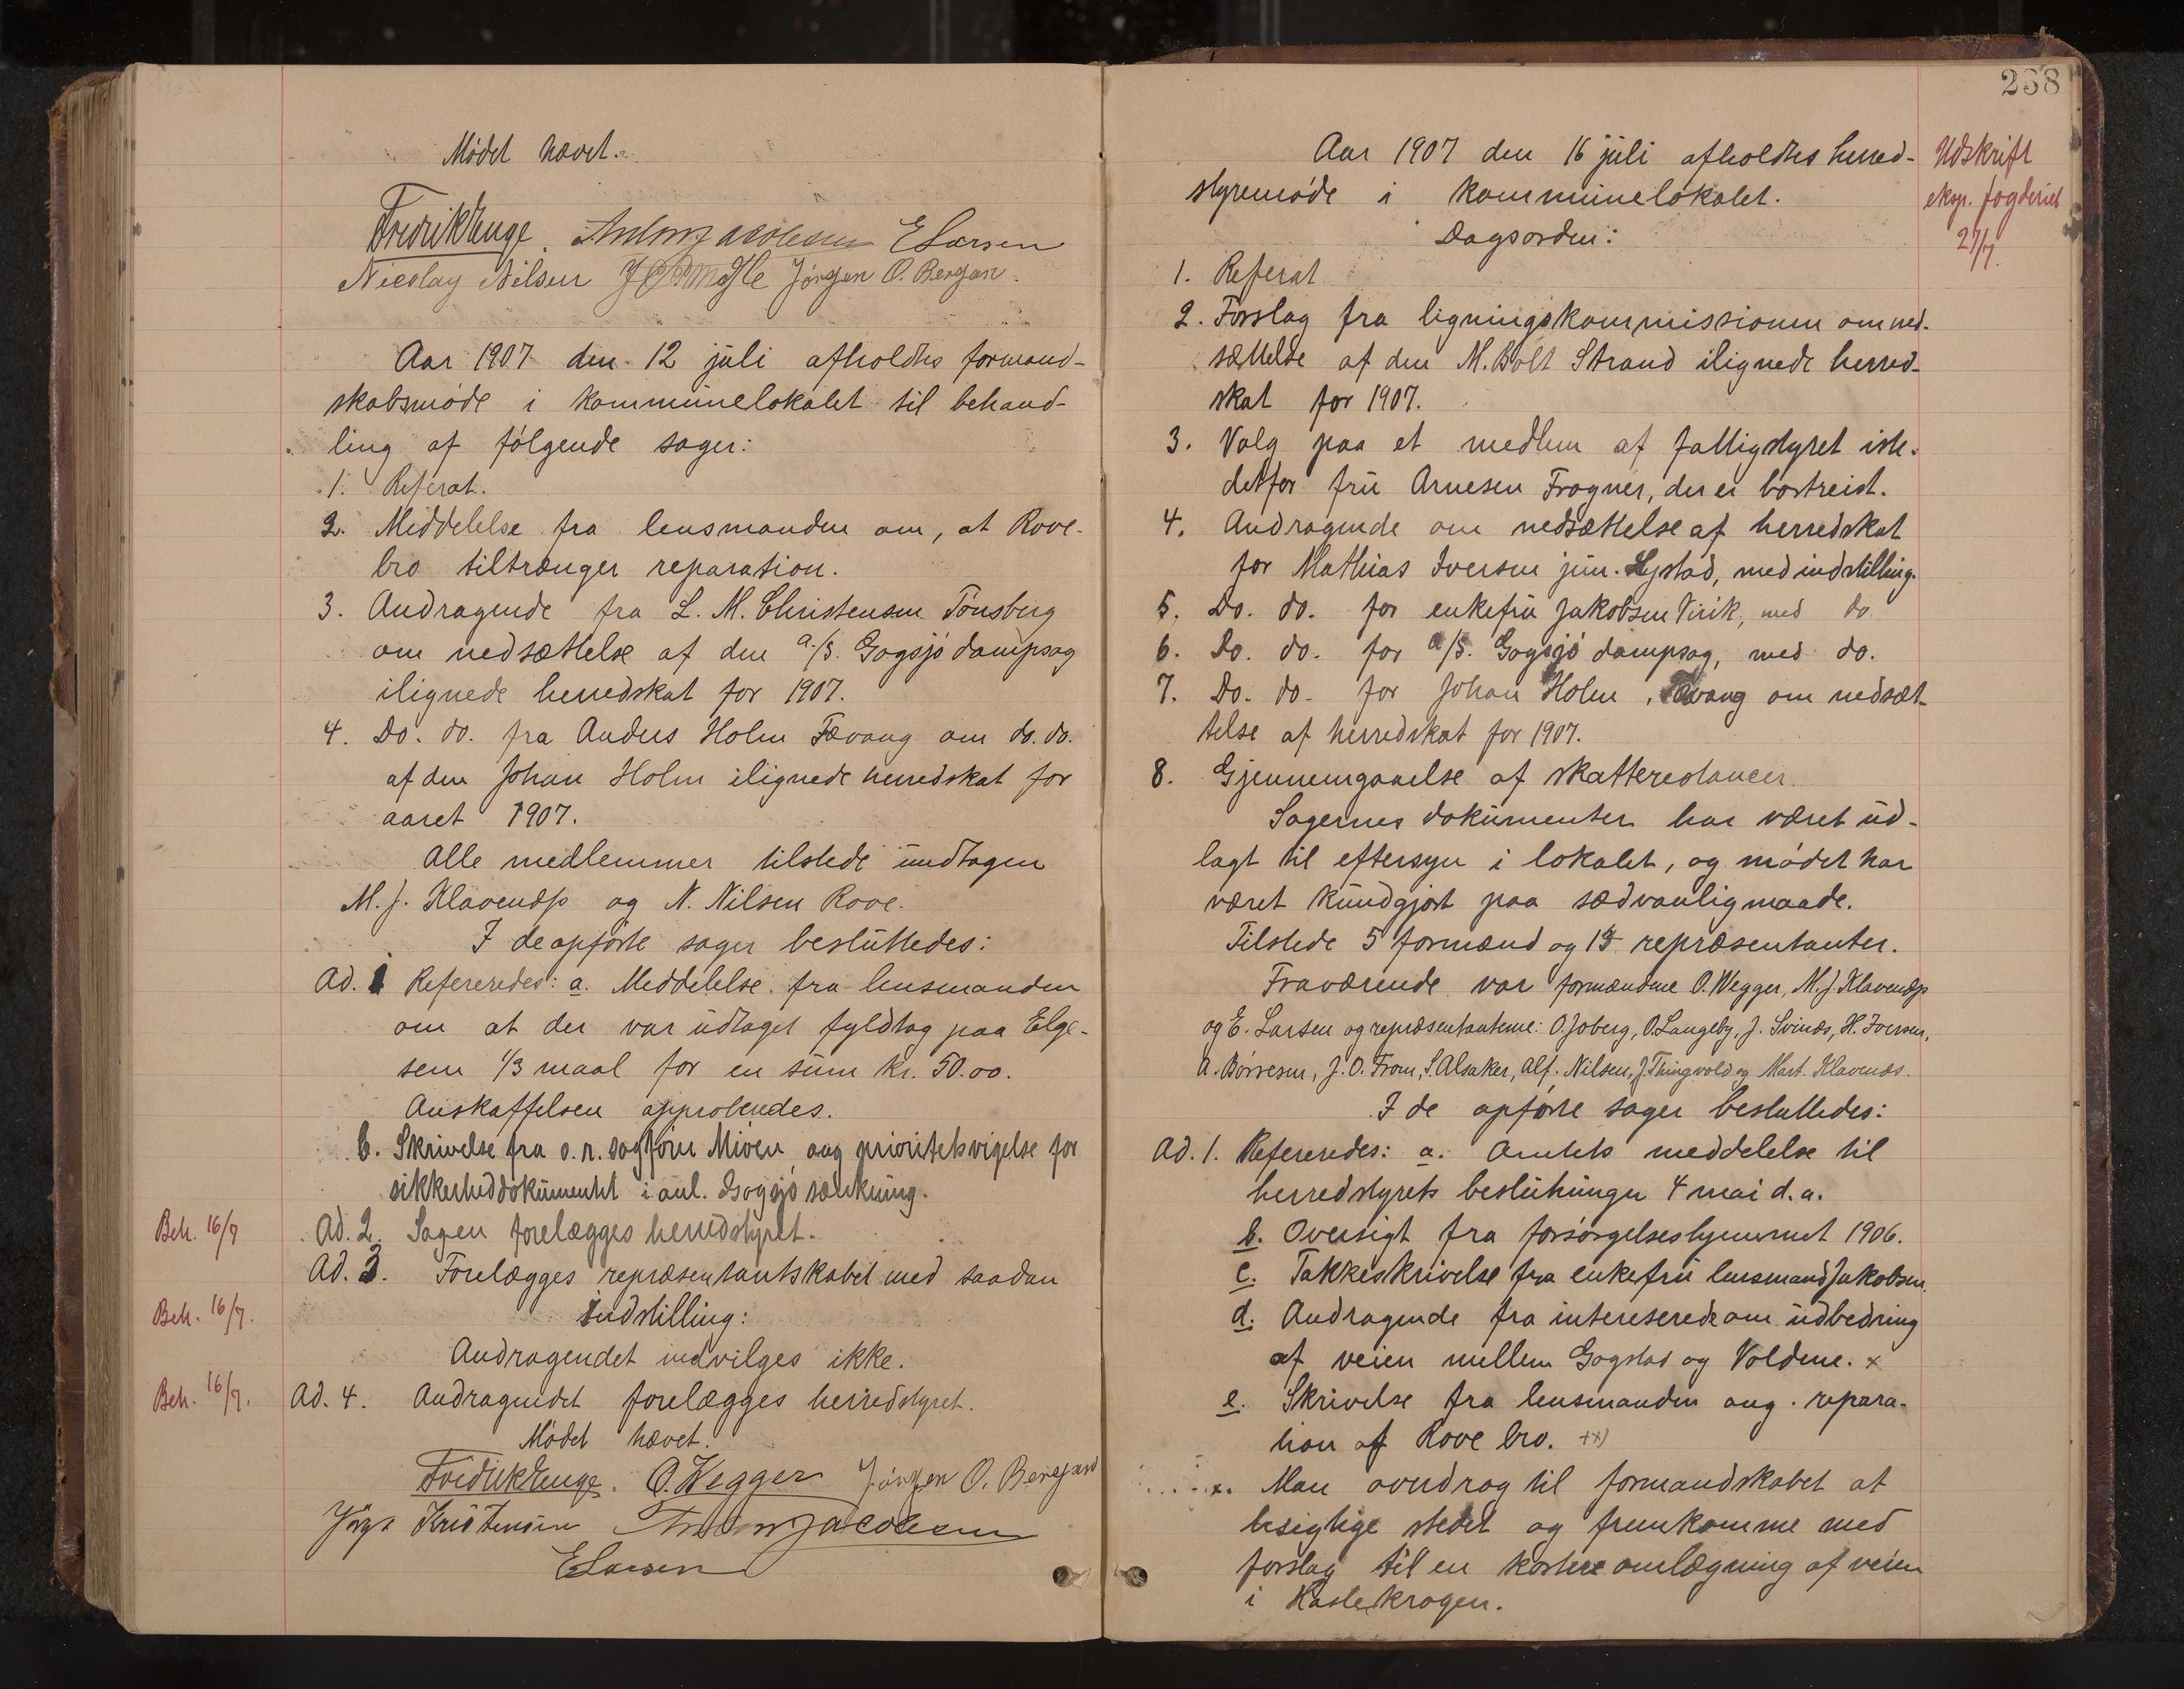 Mødet hævet.
Fredrik Venge. Anton Jacobsen E Larsen
Nicolay Nilsen Jørgen O. Bergan.
Aar 1907 den 12 juli afholdtes formand-
skabsmøde i kommunelokalet til behand-
ling af følgende sager:
1. Referat.
2. Middelelse fra lensmanden om, at Rove-
bro tiltrænger reparation.
3. Andragende fra L. M. Christensen Tønsberg
om nedsættelse af den a/s. Gogsjø dampsag
ilignede herredskat for 1907.
4. Do. do. fra Anders Holm Fævang om do. do.
af den Johan Holm ilignede herredskat for
aaret 1907.
Alle medlemmer tilstede undtagen
M. J. Klavenæs og N. Nilsen Rove.
I de opførte sager besluttedes:
Ad. 1 Refereredes: a. Meddelelse fra lensmanden
om at der var udtaget fyldtag paa Elge-
sem 1/3 maal for en sum kr. 50.00.
Anskaffelsen approberedes.
b. Skrivelse fra o. r. sagfører Mioen ang prioritetsvigelse for
sikkerheddokumentet i anl. Gogsjø sænkning.
Beh. 16/7 Ad. 2. Sagen forelægges herredstyret.
Ad. 3. Forelægges repræsentantskabet med saadan
Beh. 16/7. Indstilling:
Andragendet indvilges ikke.
Beh. 16/7. Ad. 4. Andragendet forelægges herredstyret.
Mødet hævet.
Fredrik Venge. O. Wegger Jørgen O. Bergan
Jørgen Kristensen Anton Jacobsen
E Larsen
238
Aar 1907 den 16 juli afholdtes herred-
styremøde i kommunelokalet.
Udskrift
eksp. fogderiet
27/7.
Dagsorden:
1. Referat
2. Forslag fra ligningskommissionen om ned-
sættelse af den M. Bolt Strand ilignede herred-
skat for 1907.
3. Valg paa et medlem af fattigstyret iste-
detfor fru Arnesen Fragner, der er bortreist.
4. Andragende om nedsættelse af herredskat
for Mathias Iversen jun. Hystad, med indstilling.
5. Do. do. for enkefru Jakobsen Virik, med do.
6. Do. do. for a/s. Gogsjø dampsag, med do.
7. Do. do. for Johan Holm, Fævang om nedsæt-
telse af herredskat for 1907.
8. Gjennemgaaelse af skatterestancer.
Sagernes dokumenter har været ud-
lagt til eftersyn i lokalet, og mødet har
været kundgjort paa sædvanlig maade.
Tilstede 5 formænd og 15 repræsentanter.
Fraværende var formændene O. Wegger, M. J. Klavenæs
og E. Larsen og repræsentanterne: O. Joberg, O. Langeby, J. Svinæs, H. Iversen,
A. Børresen, J. O. From, S. Alsaker, Alf. Nilsen, J. Thingvold og Mart. Klavenæs.
I de opførte sager besluttedes:
Ad. 1. Refereredes: a. Amtets meddelelse til
herredstyrets beslutninger 4 mai d. a.
b. Oversigt fra forsørgelsestyrernet 1906.
c. Takkeskrivelse fra enkefru lensmand Jakobsen.
d. Andragende fra intereserede om udbedring
af veien mellem Gogstad og Voldene. x
e. Skrivelse fra lensmanden ang. repara-
tion af Rove bro. xx)
x. Man overdrog til formandskabet at
besigtige stedet og fremkomme med
forslag til en kortere omlægning af veien
i Haslekrogen.